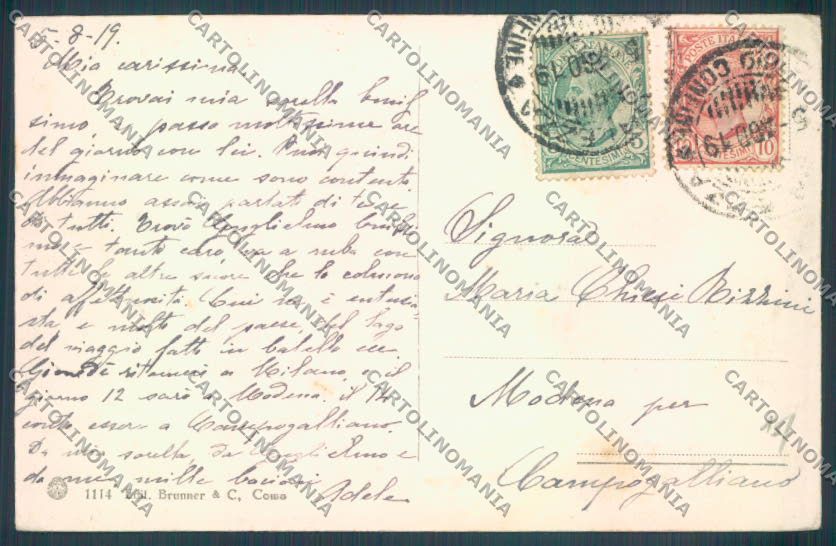 5-8-19.
Mia carissima
Trovai mia sorella benis
simo, e passo moltissime ore
del giorno con lei. Puoi quindi
immaginare come sono contenta.
Abbiamo assai parlato di te e
di tutti. Trovò Guglielmo benis
mo = tanto caro, va a ruba con
tutte le altre suore che lo colmano
di affettuosità. Lui è entusia
sta e molto del paese, del lago
del viaggio fatto in batello ecc
Giovedì ritornerà a Milano, e il
giorno 12 sarò a Modena, il 14
conto essere a Campogalliano.
Da mia sorella, da Guglielmo e
da me mille bacioni
Adele
1114 Edit. Brunner & C, Como
POSTE ITALIANE
CENTESIMI 5
POSTE ITALIANE
CENTESIMI 10
CONFINE
Signora
Maria Chiesi Bizzini
Modena per
Campogalliano
CARTOLINOMANIA